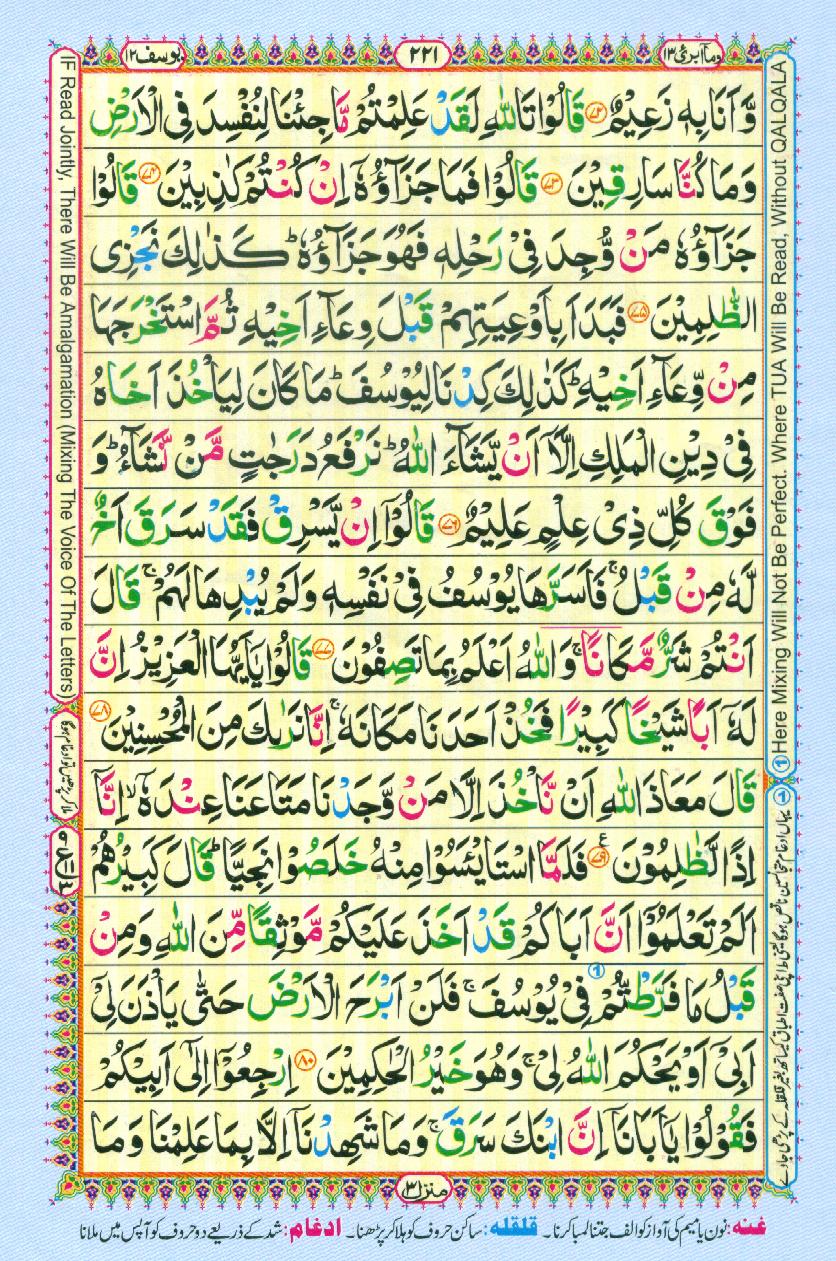 وماابرئ١٣
٢٢١
یوسف١٢
وَّاَنَا بِهٖ زَعِیْمٌ ﴿٧٢﴾ قَالُوْا تَاللّٰهِ لَقَدْ عَلِمْتُمْ مَّا جِئْنَا لِنُفْسِدَ فِی الْاَرْضِ
وَمَا كُنَّا سَارِقِیْنَ ﴿٧٣﴾ قَالُوْا فَمَا جَزَآؤُهٗۤ اِنْ كُنْتُمْ كٰذِبِیْنَ ﴿٧٤﴾ قَالُوْا
جَزَآؤُهٗ مَنْ وُّجِدَ فِیْ رَحْلِهٖ فَهُوَ جَزَآؤُهٗ ؕ كَذٰلِكَ نَجْزِی
الظّٰلِمِیْنَ ﴿٧٥﴾ فَبَدَاَ بِاَوْعِیَتِهِمْ قَبْلَ وِعَآءِ اَخِیْهِ ثُمَّ اسْتَخْرَجَهَا
مِنْ وِّعَآءِ اَخِیْهِ ؕ كَذٰلِكَ كِدْنَا لِیُوْسُفَ ؕ مَا كَانَ لِیَاْخُذَ اَخَاهُ
فِیْ دِیْنِ الْمَلِكِ اِلَّاۤ اَنْ یَّشَآءَ اللّٰهُ ؕ نَرْفَعُ دَرَجٰتٍ مَّنْ نَّشَآءُ ؕ وَ
فَوْقَ كُلِّ ذِیْ عِلْمٍ عَلِیْمٌ ﴿٧٦﴾ قَالُوْۤا اِنْ یَّسْرِقْ فَقَدْ سَرَقَ اَخٌ
لَّهٗ مِنْ قَبْلُ ۚ فَاَسَرَّهَا یُوْسُفُ فِیْ نَفْسِهٖ وَلَمْ یُبْدِهَا لَهُمْ ۚ قَالَ
اَنْتُمْ شَرٌّ مَّكَانًا ۚ وَاللّٰهُ اَعْلَمُ بِمَا تَصِفُوْنَ ﴿٧٧﴾ قَالُوْا یٰۤاَیُّهَا الْعَزِیْزُ اِنَّ
لَهٗۤ اَبًا شَیْخًا كَبِیْرًا فَخُذْ اَحَدَنَا مَكَانَهٗ ۚ اِنَّا نَرٰىكَ مِنَ الْمُحْسِنِیْنَ ﴿٧٨﴾
قَالَ مَعَاذَ اللّٰهِ اَنْ نَّاْخُذَ اِلَّا مَنْ وَّجَدْنَا مَتَاعَنَا عِنْدَهٗۤ ۙ اِنَّاۤ
اِذًا لَّظٰلِمُوْنَ ﴿٧٩﴾ ع فَلَمَّا اسْتَایْـَٔسُوْا مِنْهُ خَلَصُوْا نَجِیًّا ؕ قَالَ كَبِیْرُهُمْ
اَلَمْ تَعْلَمُوْۤا اَنَّ اَبَاكُمْ قَدْ اَخَذَ عَلَیْكُمْ مَّوْثِقًا مِّنَ اللّٰهِ وَمِنْ
قَبْلُ مَا فَرَّطْتُّمْ ① فِیْ یُوْسُفَ ۚ فَلَنْ اَبْرَحَ الْاَرْضَ حَتّٰی یَاْذَنَ لِیْۤ
اَبِیْۤ اَوْ یَحْكُمَ اللّٰهُ لِیْ ۚ وَهُوَ خَیْرُ الْحٰكِمِیْنَ ﴿٨٠﴾ اِرْجِعُوْۤا اِلٰۤی اَبِیْكُمْ
فَقُوْلُوْا یٰۤاَبَانَاۤ اِنَّ ابْنَكَ سَرَقَ ۚ وَمَا شَهِدْنَاۤ اِلَّا بِمَا عَلِمْنَا وَمَا
منزل٣
غنه: نون یا میم کی آواز کو الف جتنا لمبا کرنا۔ قلقله: ساکن حروف کو ہلا کر پڑھنا۔ ادغام: شد کے ذریعے دو حروف کو آپس میں ملانا
①Here Mixing Will Not Be Perfect. Where TUA Will Be Read, Without QALQALA
IF Read Jointly, There Will Be Amalgamation (Mixing The Voice Of The Letters)
ملا کر پڑھیں تو ادغام ہوگا